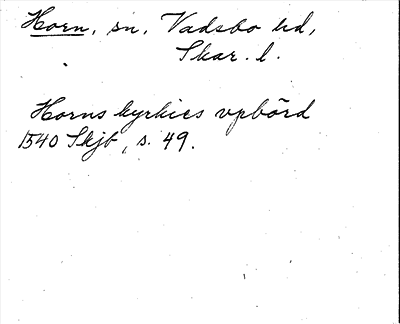 Horn, sn, Vadsbo hd,
Skar. l.
Horns kyrkies vpbörd
1540 Skjb, s. 49.